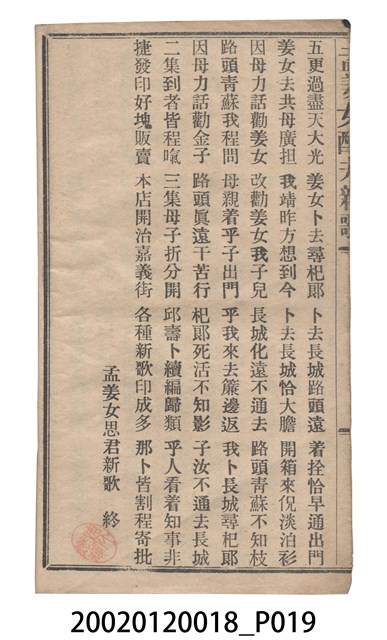 孟姜女配夫新歌
五更過盡天大光 姜女卜去尋杞郎 卜去長城路頭遠 着拴恰早通出門
姜女去共母廣担 我靖昨方想到今 卜去長城恰大膽 開箱來倪淡泊衫
因母力話勸姜女 改勸姜女我子兒 長城化遠不通去 路頭青蘇不知枝
路頭青蘇我程問 母親着乎子出門 乎我來去簾邊返 我卜長城尋杞郎
因母力話勸金子 路頭眞遠干苦行 杞郎死活不知影 子汝不通去長城
二集到者皆程吼 三集母子折分開 邱壽卜續編歸類 乎人看着知事非
捷發印好塊販賣 本店開治嘉義街 各種新歌印成多 那卜皆割程寄批
孟姜女思君新歌 終
20020120018_P019